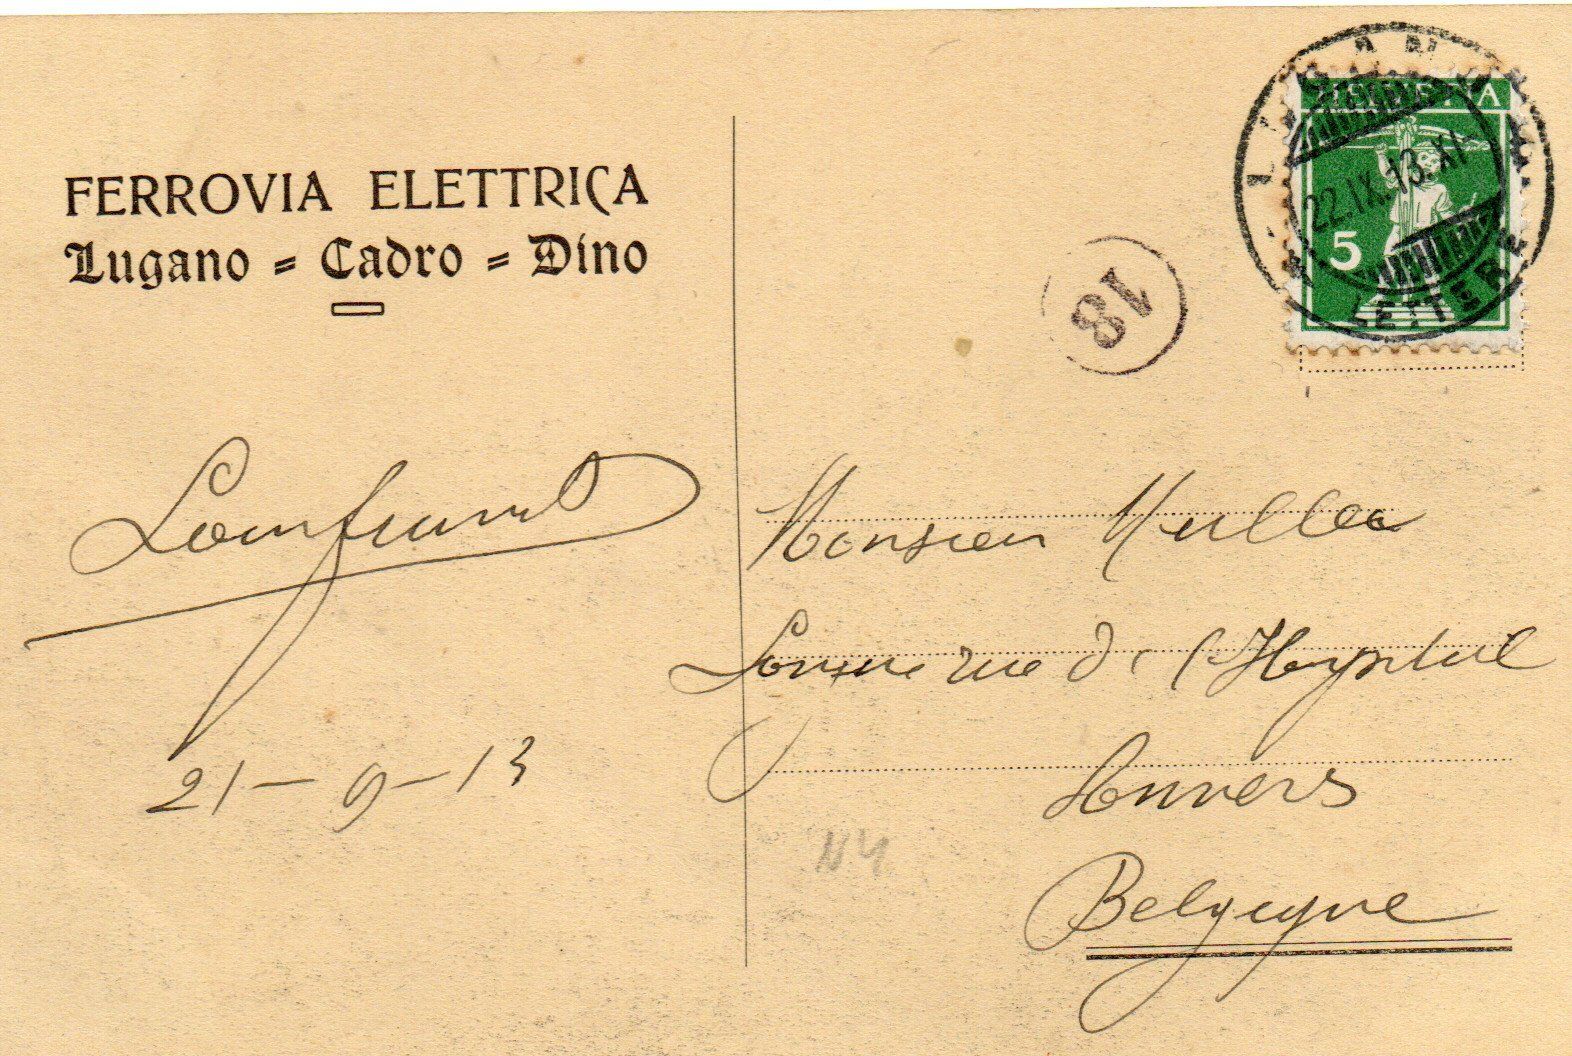 FERROVIA ELETTRICA
Lugano = Cadro = Dino
21-9-13
HELVETIA
5
LUGANO
22.IX.13.XI
LETTERE
18
Monsieur Muller
Longue rue de l'Hopital
Anvers
Belgique
N4